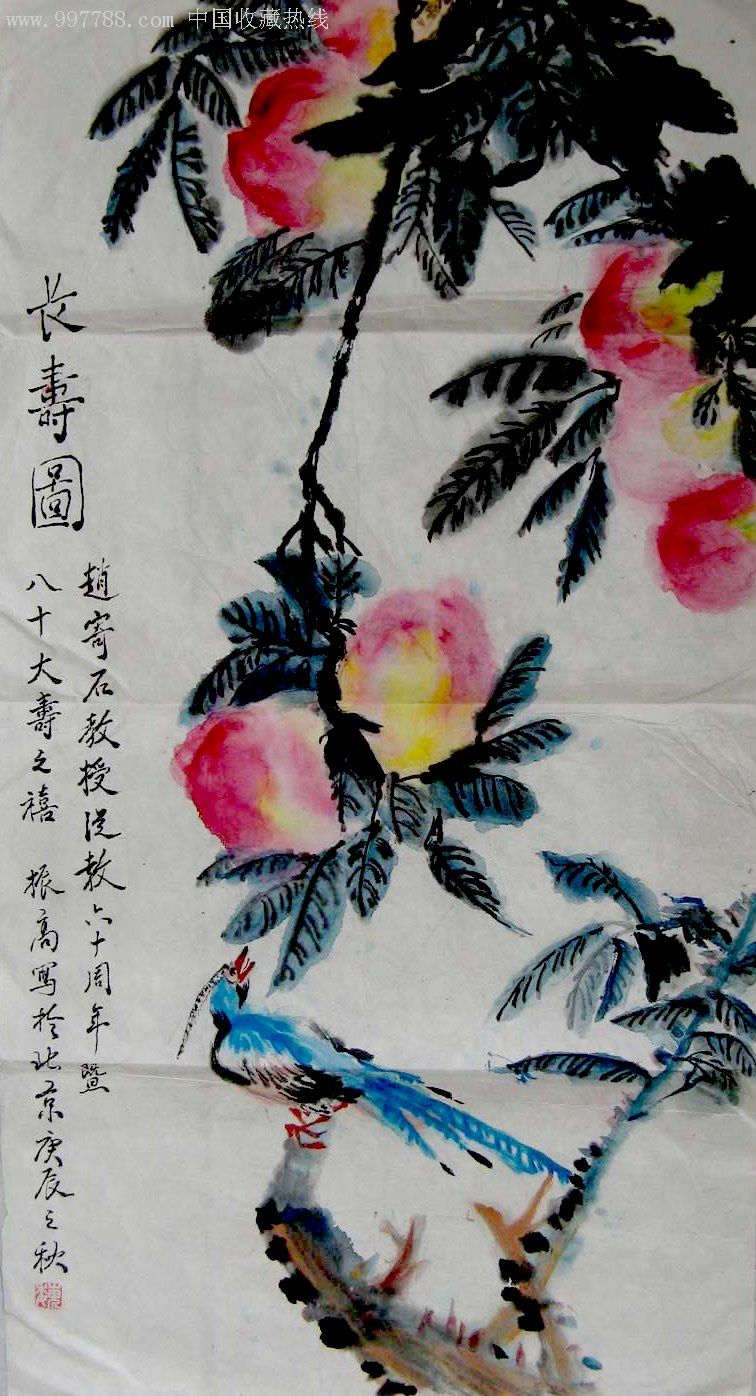 www.997788.com 中国收藏热线
长壽圖
趙寄石教授從教六十周年暨
八十大壽之禧 振高寫於北京庚辰之秋